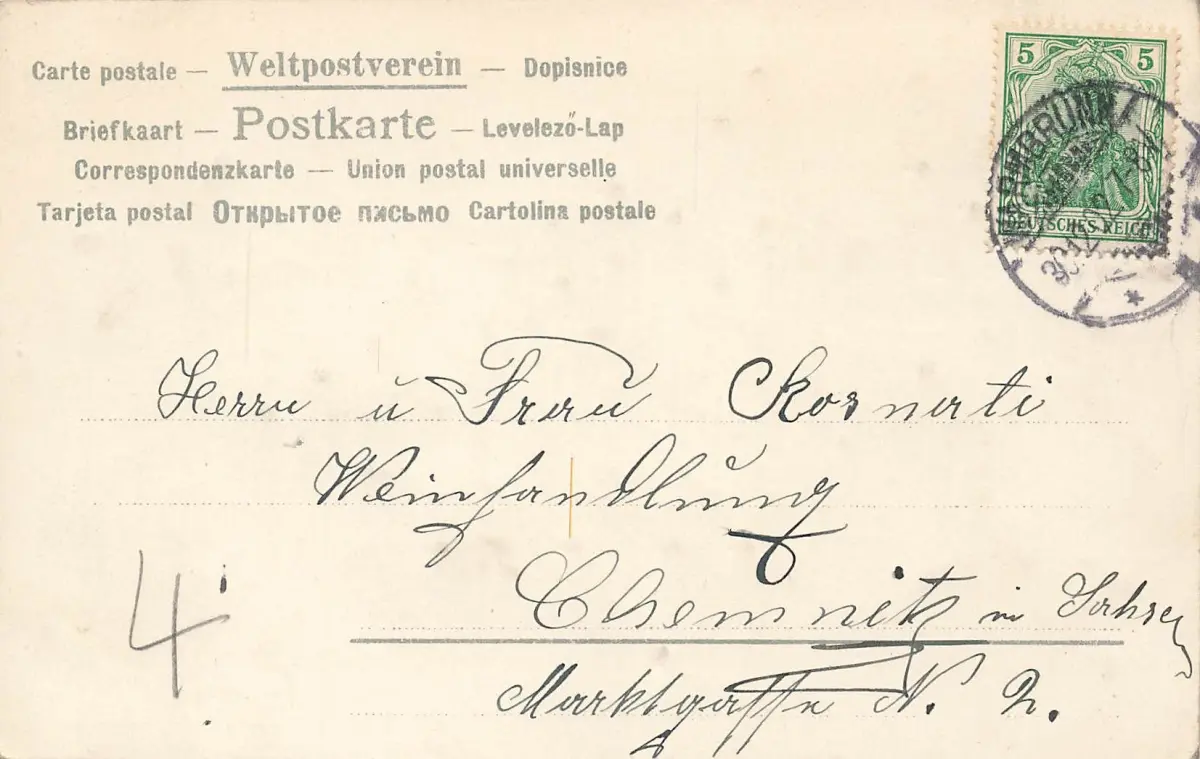 Carte postale — Weltpostverein — Dopisnice
Briefkaart — Postkarte — Levelező-Lap
Correspondenzkarte — Union postal universelle
Tarjeta postal Открытое письмо Cartolina postale
5 5
DEUTSCHES REICH
Herrn u Frau Kosnati
Weinhandlung
Chemnitz in Sachsen
Marktgasse N. 2.
4